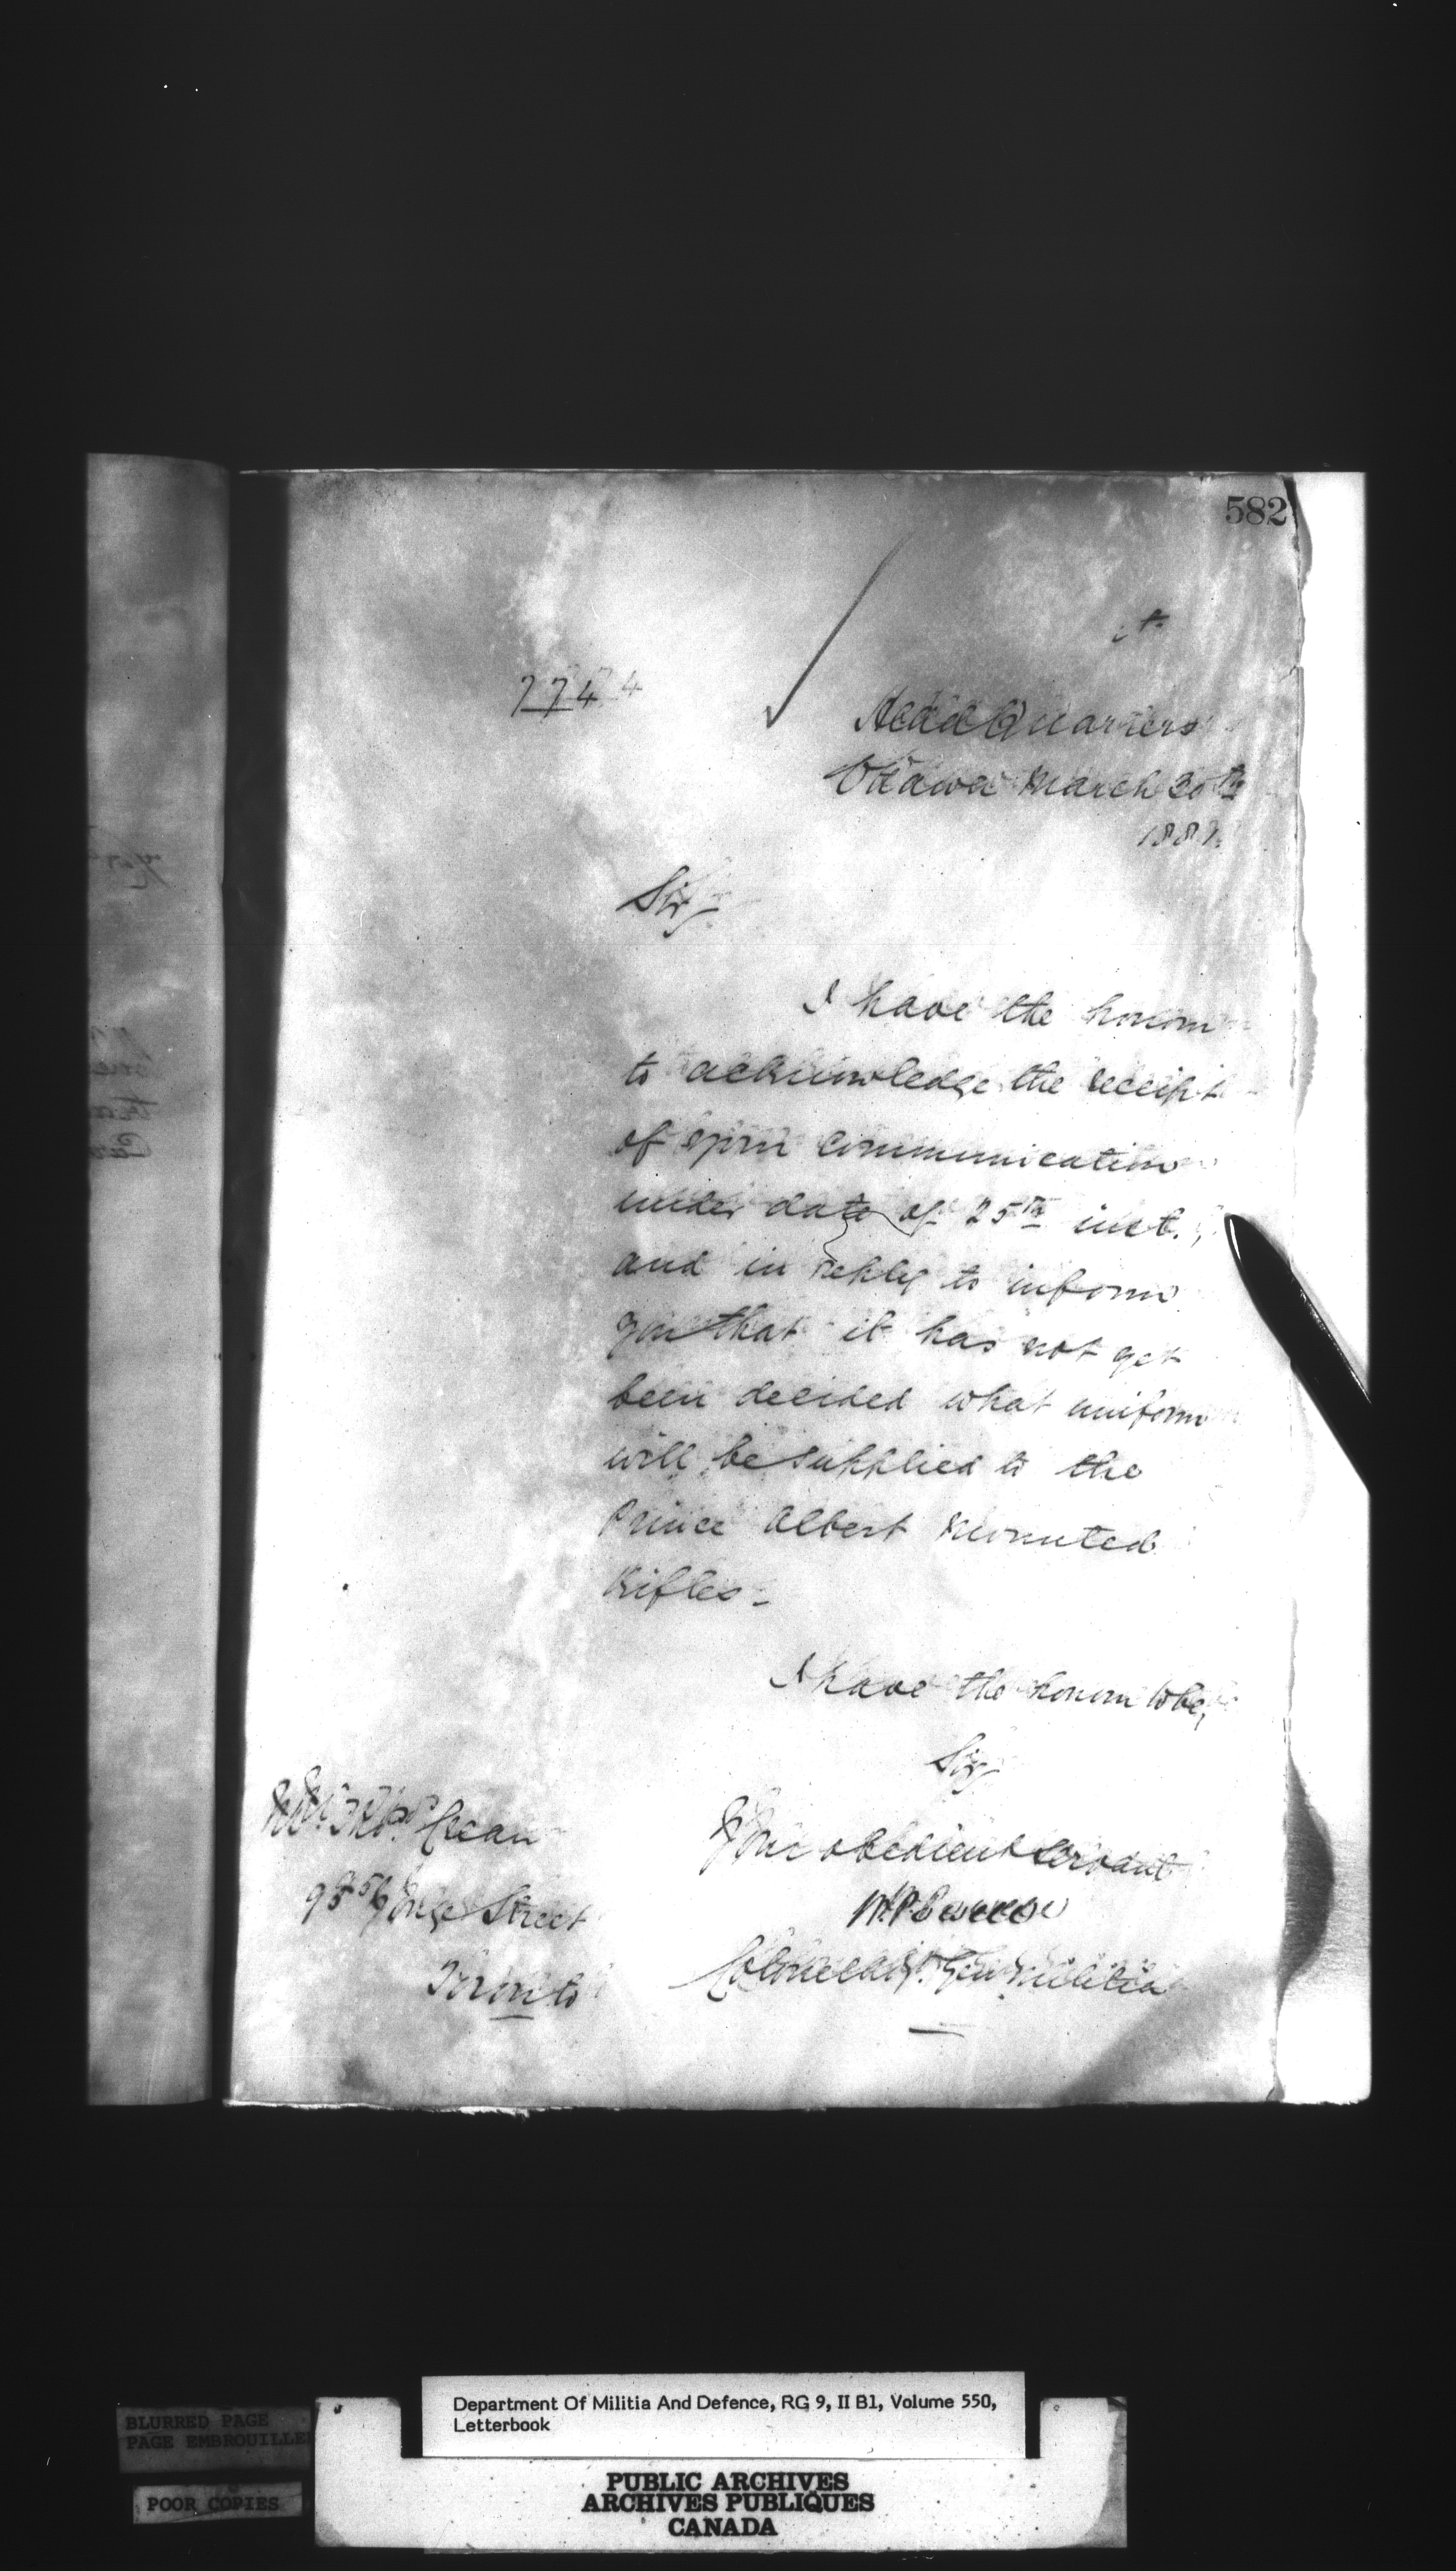 582
7744
Head Quarters
Ottawa March 30th
188
Sir,
I have the honour
to acknowledge the receipt
of your communication
under date of 25th inst.,
and in reply to inform
you that it has not yet
been decided what uniform
will be supplied to the
Prince Albert Mounted
Rifles_
I have the honour to be,
Sir,
Your obedient servant
Colonel Adjt. Gen. Militia
Crean
Yonge Street
Toronto
BLURRED PAGE
PAGE EMBROUILLE
POOR COPIES
Department Of Militia And Defence, RG 9, II B1, Volume 550,
Letterbook
PUBLIC ARCHIVES
ARCHIVES PUBLIQUES
CANADA